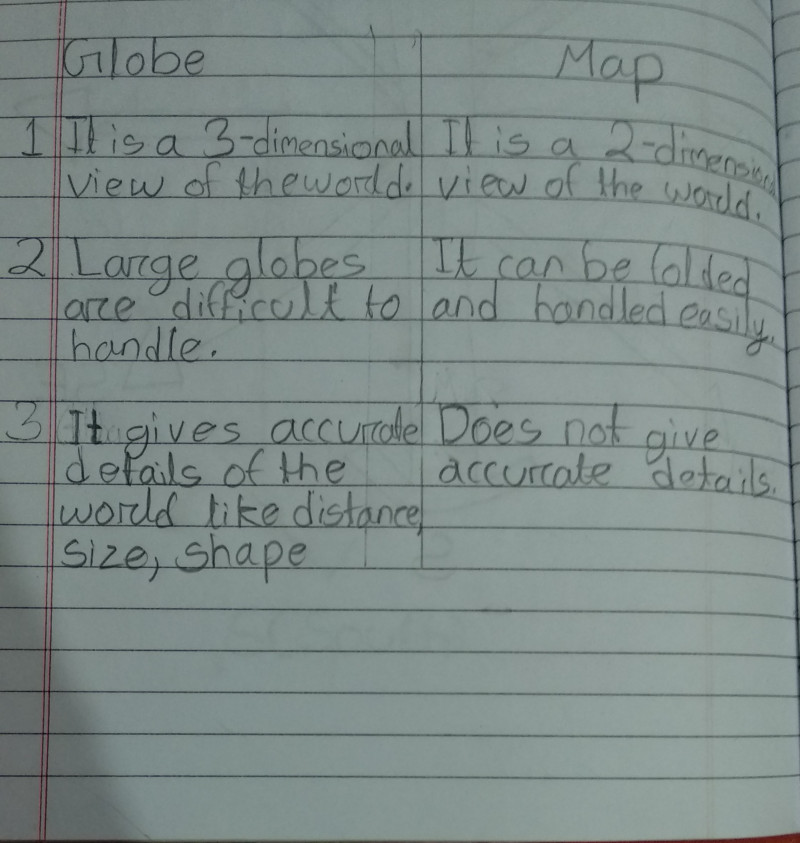 Globe
Map
1 It is a 3-dimensional
view of the world.
It is a 2-dimensional
view of the world.
2 Large globes
are difficult to
handle.
It can be folded
and handled easily.
3 It gives accurate
details of the
world like distance,
size, shape
Does not give
accurate details.